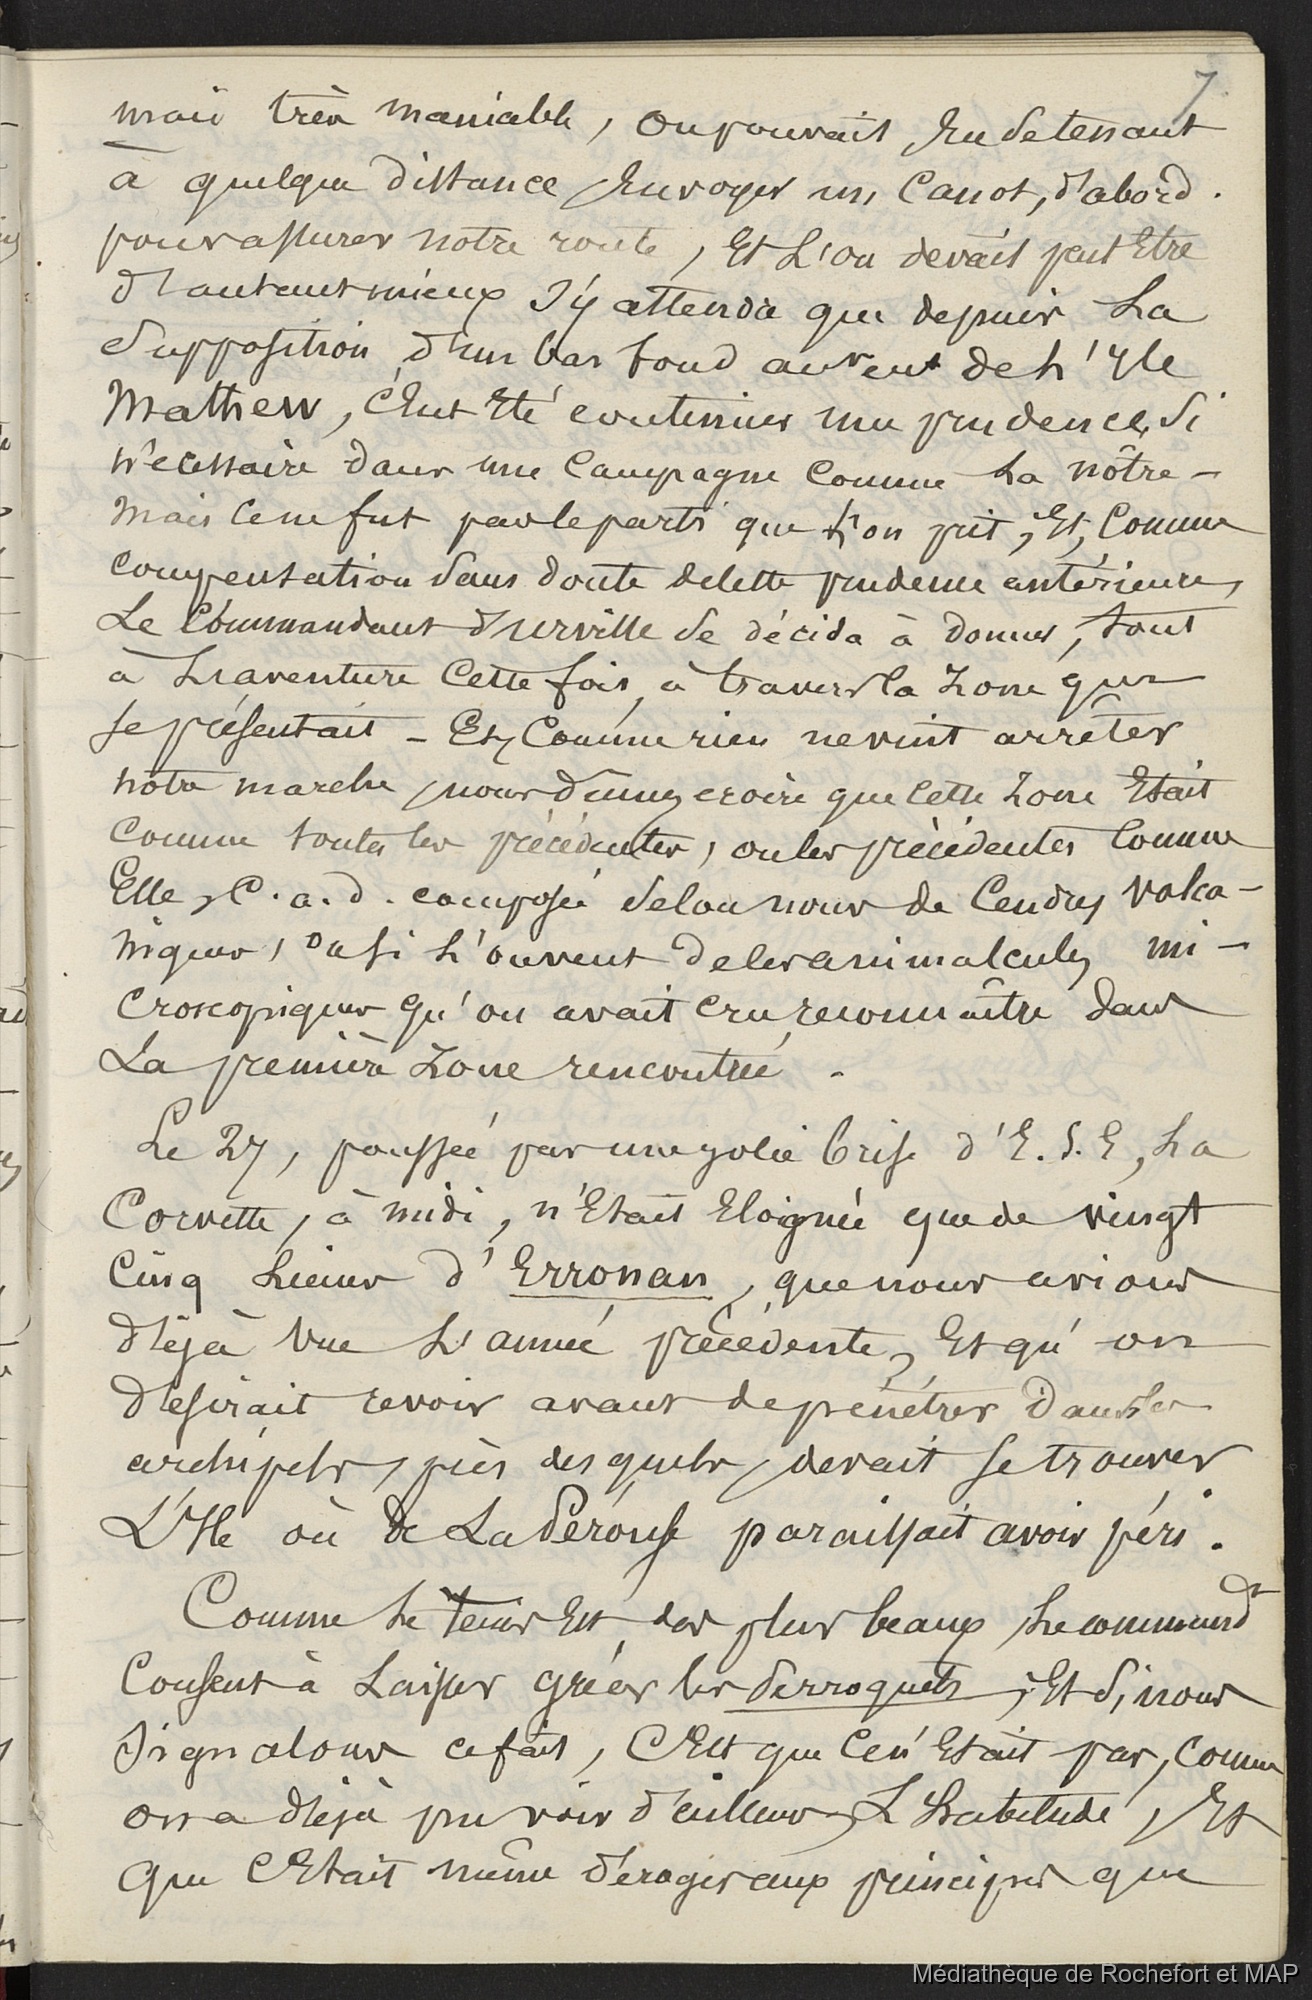 7
mais très maniable, on pouvait, En se tenant
à quelque distance, Envoyer un Canot, d'abord.
pour assurer notre route, Et L'on devait peut Etre
d'autant mieux s'y attendre que depuis La
Supposition d'un bas fond au vent de L'Yle
Mathew, c'Eut Eté continuer une prudence, Si
nécessaire dans une Campagne Comme La nôtre -
Mais Ce ne fut pas le parti que L'on prit, Et, Comme
compensation Sans doute de cette prudence antérieure,
Le Commandant d'urville Se décida à donner, tout
à L'aventure Cette fois, à travers la Zone qui
se présentait - Et, Comme rien ne vint arrêter
notre marche, nous dûmes croire que Cette Zone Etait
Comme toutes les précédentes, ou les précédentes Comme
Elle, C.a.d. composée Selon nous de Cendres volca-
niques, ou si L'on veut de les animalcules mi-
croscopiques qu'on avait cru reconnaître dans
La première Zone rencontrée.
Le 27, poussée par une jolie brise d'E.S.E, La
Corvette, à midi, n'Etait Eloignée que de vingt
Cinq Lieues d'Erronan, que nous avions
déjà vue L'année précédente, Et qu'on
désirait revoir avant de pénétrer dans les
archipels, près desquels, devait se trouver
L'Ile où de La Pérouse paraissait avoir péri.
Comme Le tems Est des plus beaux, Le command^t
Consent à Laisser gréer les perroquets, Et Si nous
Signalons ce fait, C'Est que Ce n'Etait pas, comme
on a déjà pu voir d'ailleurs, L'habitude, Et
que C'Etait même déroger aux principes que
Médiathèque de Rochefort et MAP